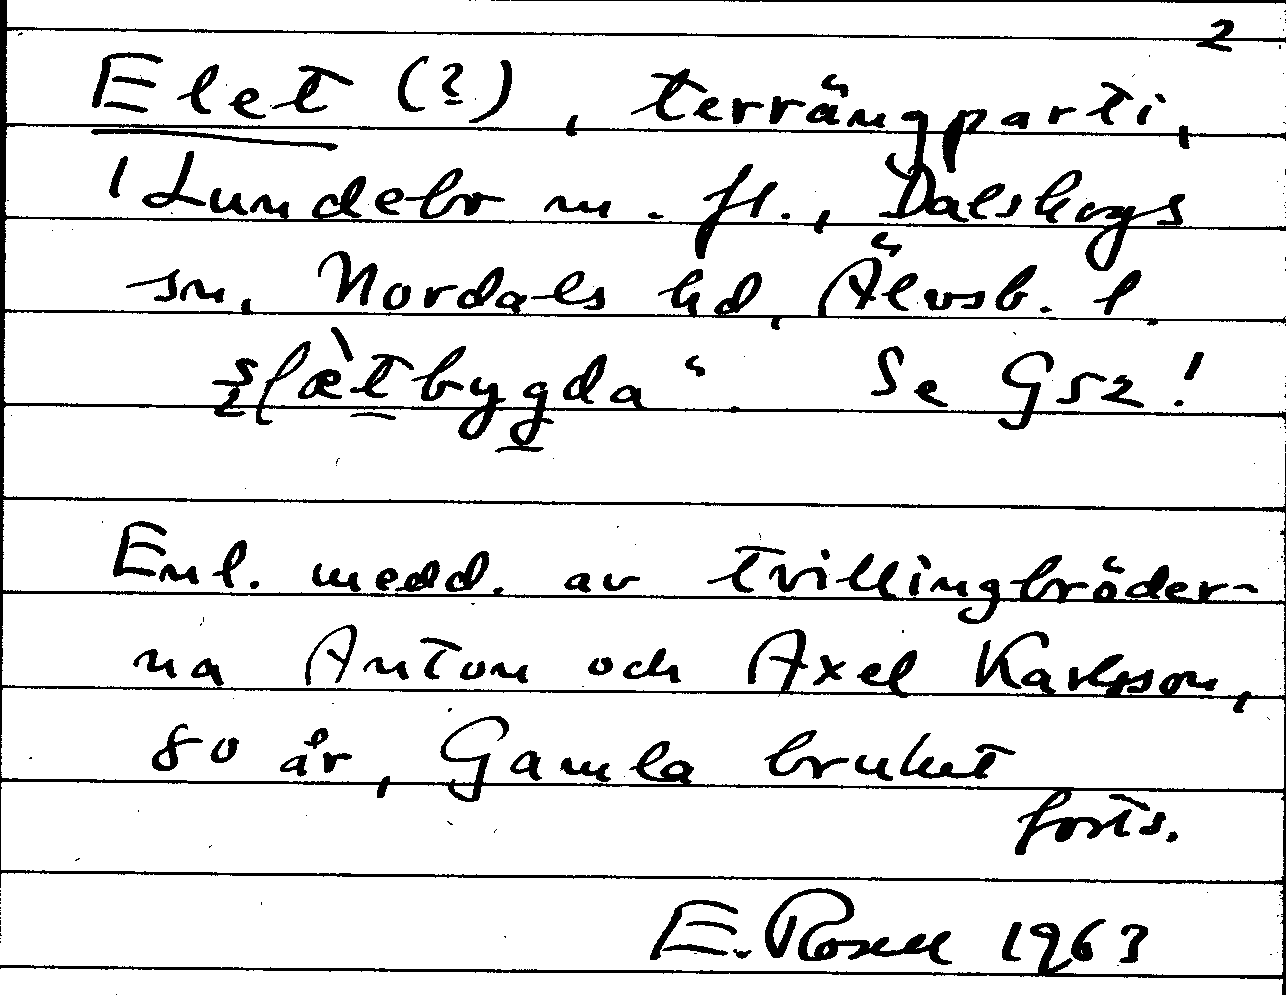 2
Elet (?), terrängparti,
1 Lundebo m. fl., Dalskogs
sn, Nordals hd, Älvsb. l.
"Se G52!
Enl. medd. av tvillingbröder-
na Anton och Axel Karlsson,
80 år, Gamla bruket
forts.
E. Rosell 1963